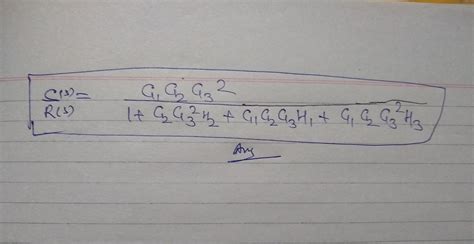 C(s) = G₁G₂G₃²
R(s) 1 + G₂G₃²H₂ + G₁G₂G₃H₁ + G₁G₂G₃²H₃
Ans